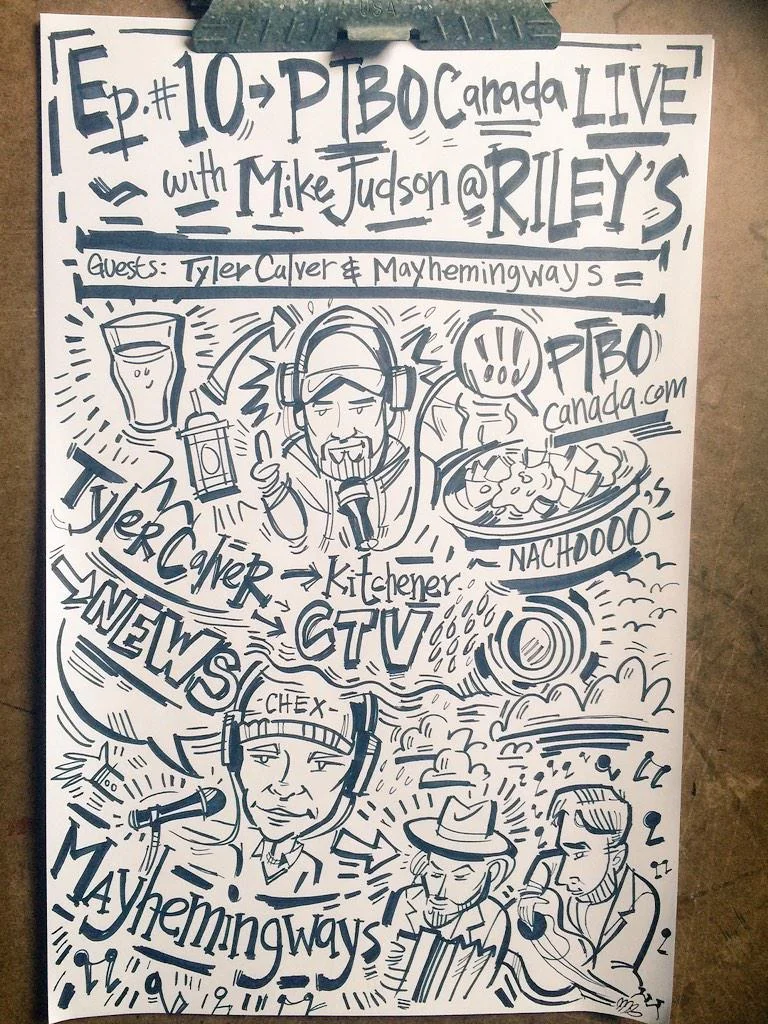 USA
Ep. #10 → PTBO Canada LIVE
with Mike Judson @ RILEY'S
Guests: Tyler Calver & Mayhemingways
!!!
PTBO
canada.com
NACHOOOO'S
Tyler Calver → Kitchener
CTV
NEWS
-CHEX-
Mayhemingways